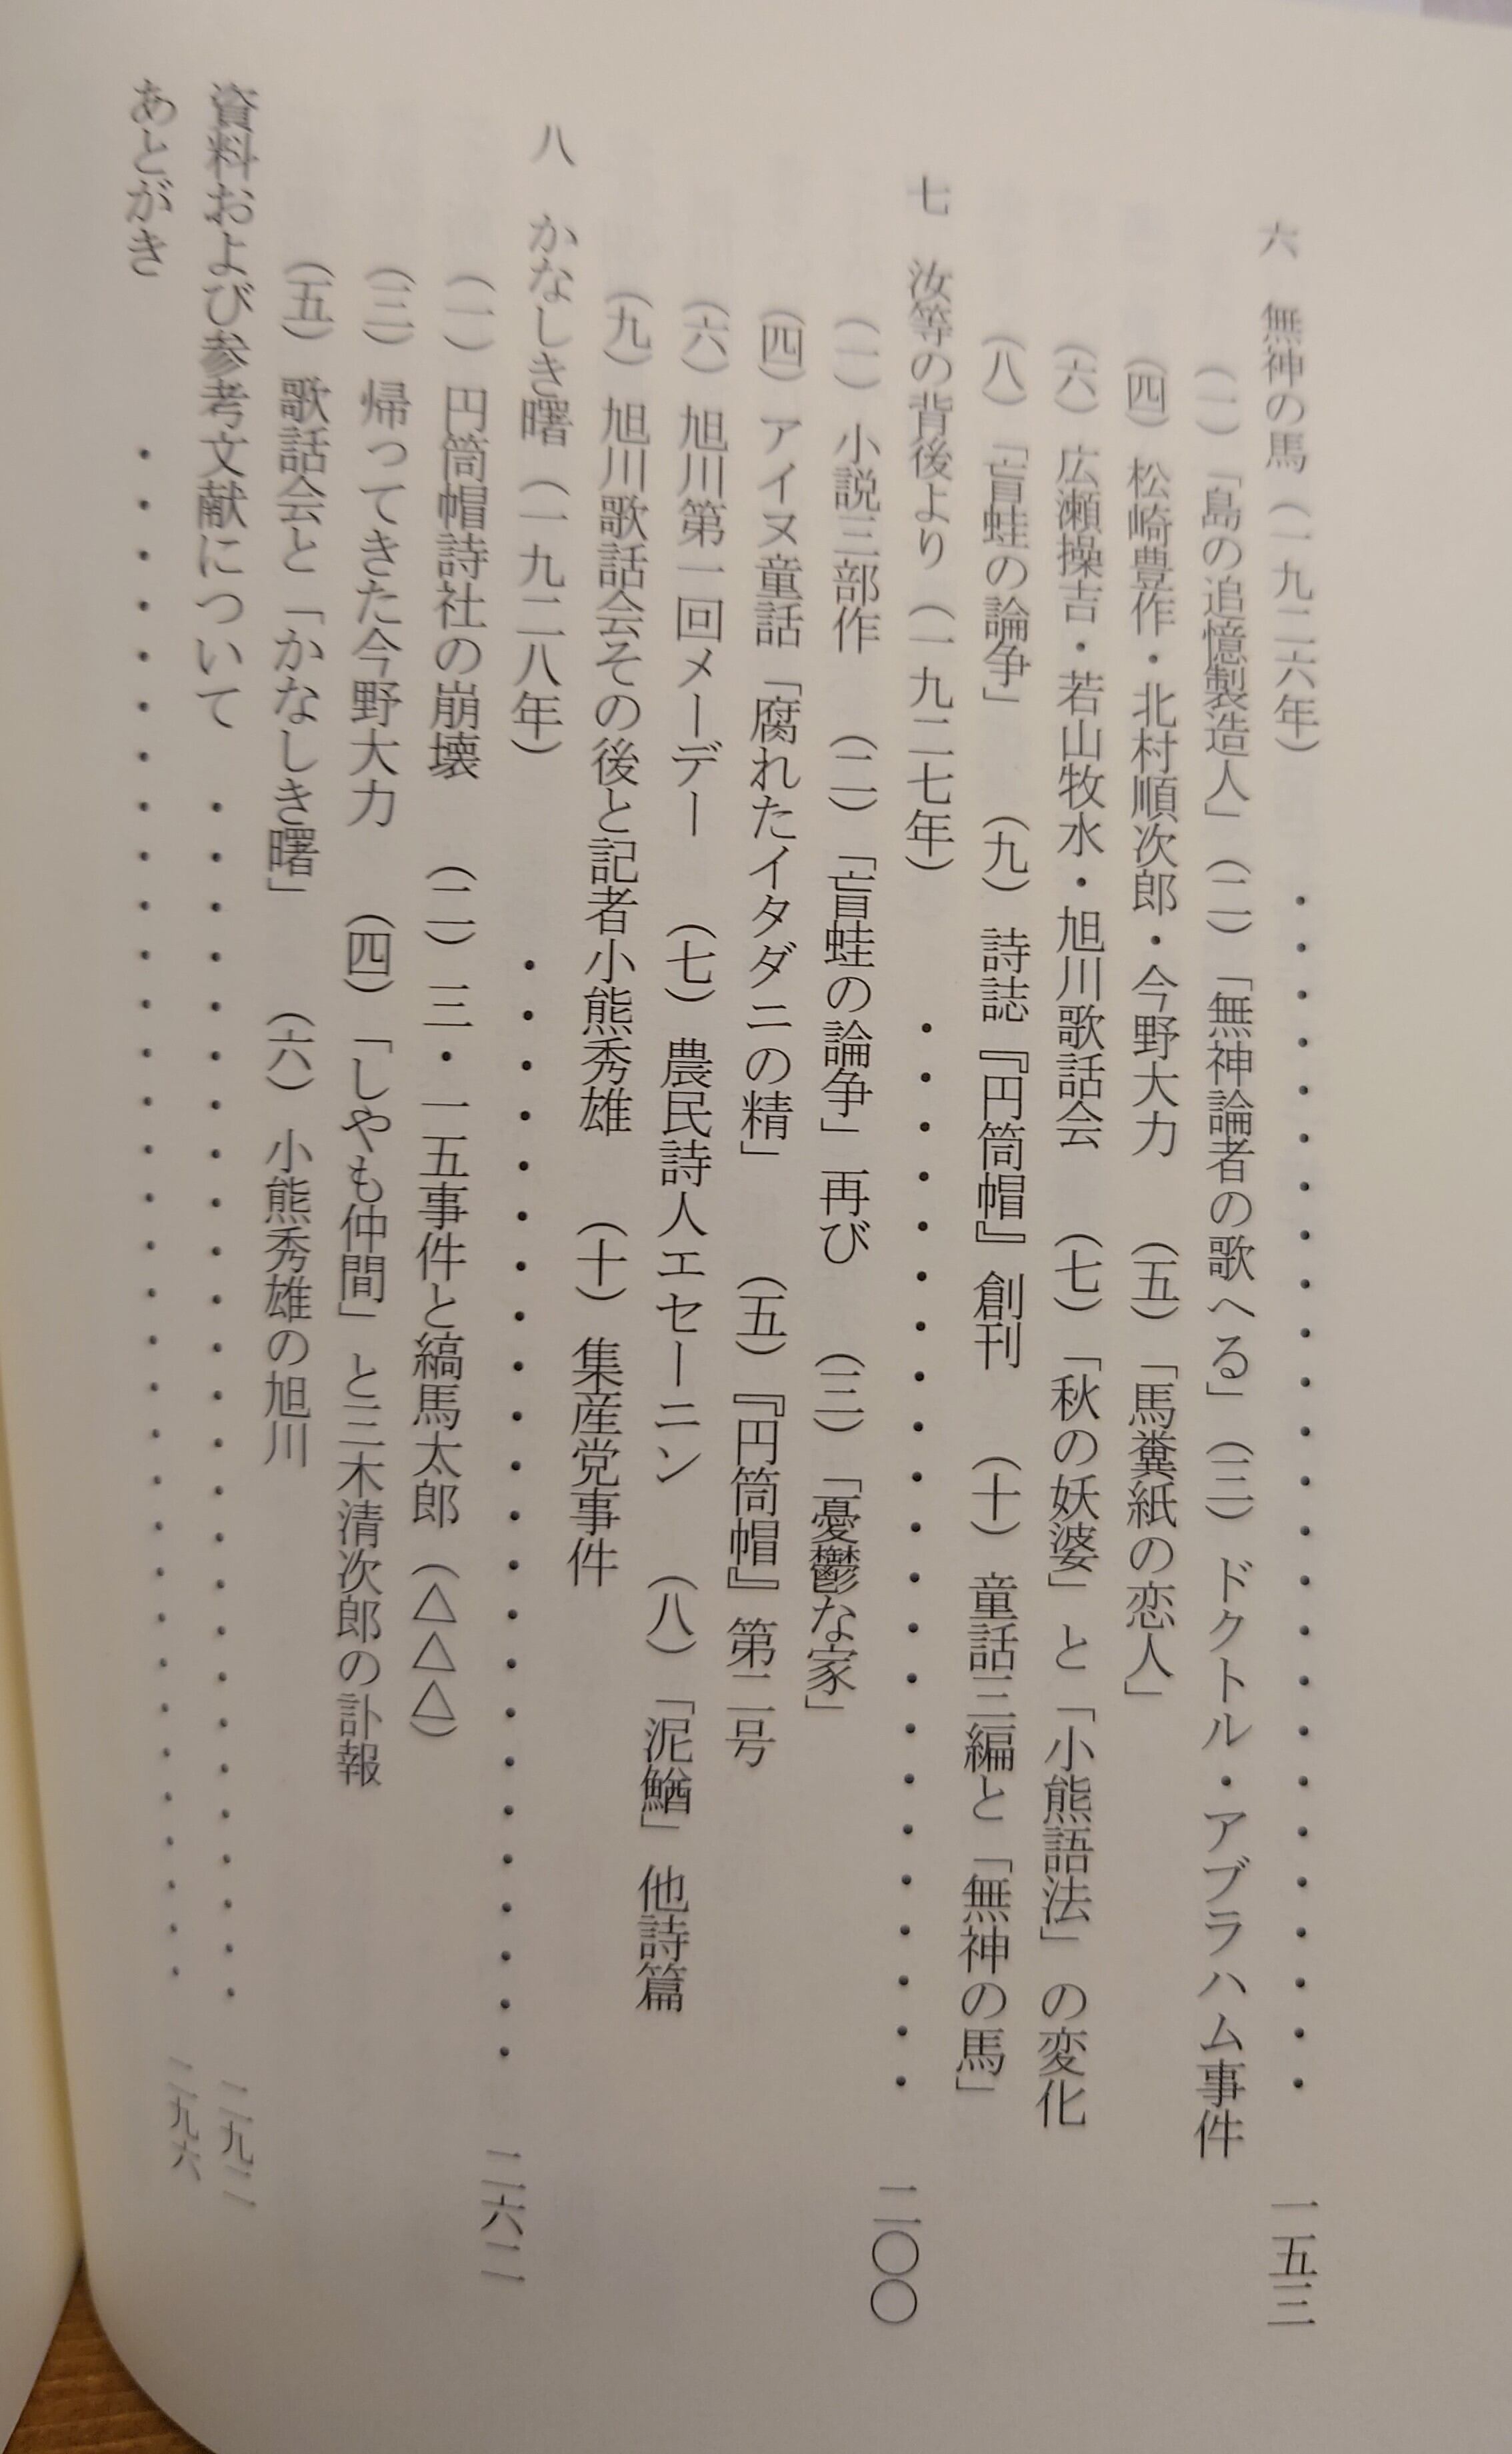 六　無神の馬（一九二六年）　・・・・・・・・・・・・・・・・・・・・・・・・・　一五三
（一）「島の追憶製造人」（二）「無神論者の歌へる」（三）ドクトル・アブラハム事件
（四）松崎豊作・北村順次郎・今野大力　（五）「馬糞紙の恋人」
（六）広瀬操吉・若山牧水・旭川歌話会　（七）「秋の妖婆」と「小熊語法」の変化
（八）「盲蛙の論争」　（九）詩誌『円筒帽』創刊　（十）童話三編と「無神の馬」
七　汝等の背後より（一九二七年）　・・・・・・・・・・・・・・・・・・・・・・　二〇〇
（一）小説三部作　（二）「盲蛙の論争」再び　（三）「憂鬱な家」
（四）アイヌ童話「腐れたイタダニの精」　（五）『円筒帽』第二号
（六）旭川第一回メーデー　（七）農民詩人エセーニン　（八）「泥鰌」他詩篇
（九）旭川歌話会その後と記者小熊秀雄　（十）集産党事件
八　かなしき曙（一九二八年）　・・・・・・・・・・・・・・・・・・・・・・・　二六二
（一）円筒帽詩社の崩壊　（二）三・一五事件と縞馬太郎（△△△）
（三）帰ってきた今野大力　（四）「しやも仲間」と三木清次郎の訃報
（五）歌話会と「かなしき曙」　（六）小熊秀雄の旭川
資料および参考文献について　・・・・・・・・・・・・・・・・・・・・・・・・・　二九二
あとがき　・・・・・・・・・・・・・・・・・・・・・・・・・・・・・・・・　二九六